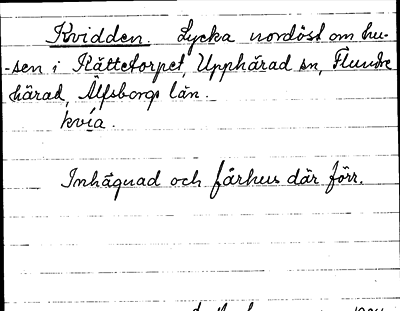 Kvidden. Lycka nordöst om hu-
-sen i Rättetorpet, Upphärad sn, Flundre
härad, Älfsborgs län.
kvía.
Inhägnad och fårhus där förr.